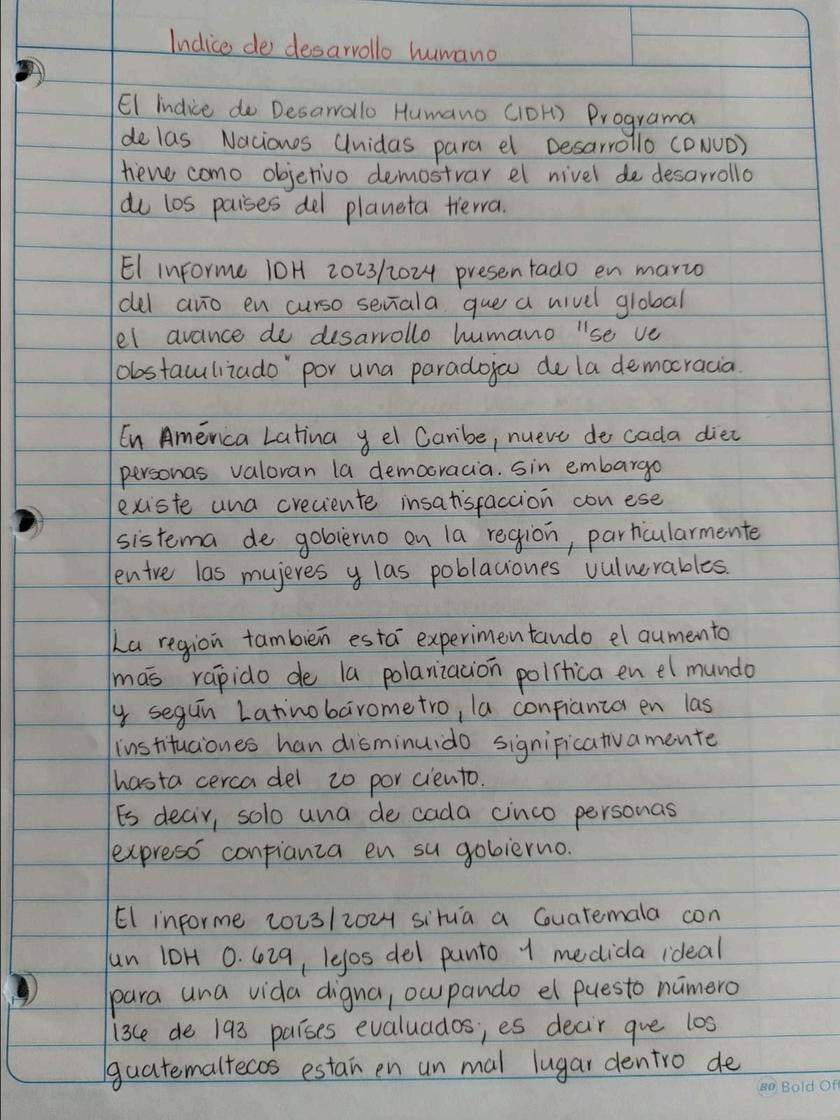 Indice de desarrollo humano
El Indice de Desarrollo Humano (IDH) Programa
de las Naciones Unidas para el Desarrollo (PNUD)
tiene como objetivo demostrar el nivel de desarrollo
de los paises del planeta tierra.
El informe IDH 2023/2024 presentado en marzo
del año en curso señala que a nivel global
el avance de desarrollo humano "se ve
obstaculizado" por una paradoja de la democracia.
En América Latina y el Caribe, nueve de cada diez
personas valoran la democracia. Sin embargo
existe una creciente insatisfacción con ese
sistema de gobierno en la región, particularmente
entre las mujeres y las poblaciones vulnerables.
La región también está experimentando el aumento
más rápido de la polarización política en el mundo
y según Latinobárometro, la confianza en las
instituciones han disminuido significativamente
hasta cerca del 20 por ciento.
Es decir, solo una de cada cinco personas
expresó confianza en su gobierno.
El informe 2023/2024 sitúa a Guatemala con
un IDH 0.629, lejos del punto 1 medida ideal
para una vida digna, ocupando el puesto número
136 de 193 países evaluados, es decir que los
guatemaltecos están en un mal lugar dentro de
BO Bold Off